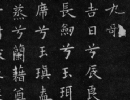 九歌
吉日兮辰良
長劍兮玉珥
席兮玉瑱盍
蒸兮蘭藉奠